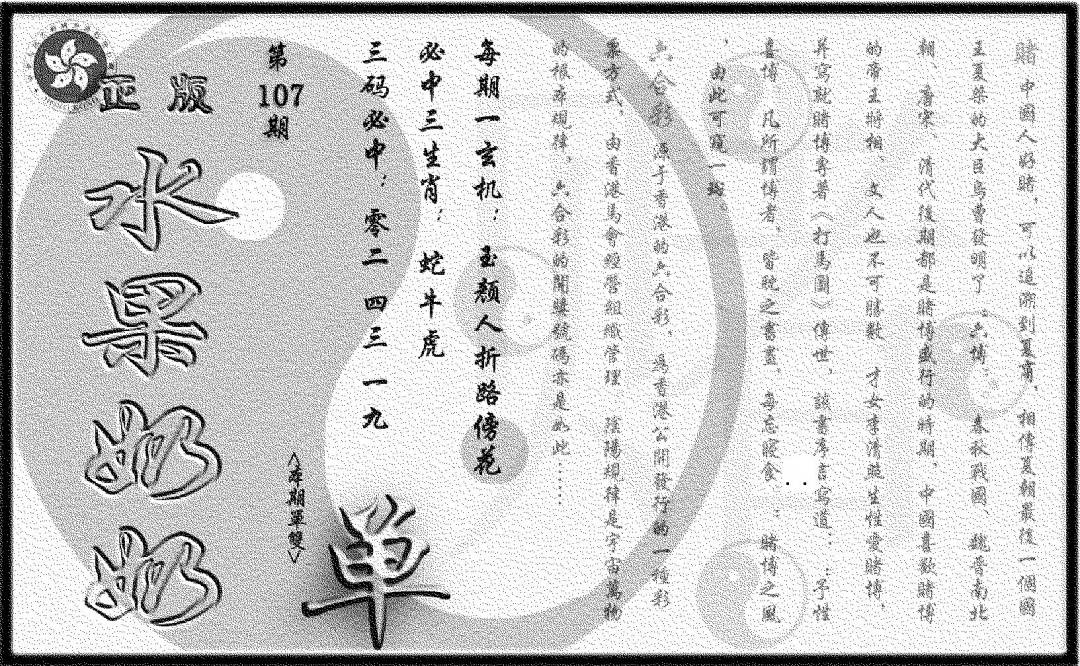 赌 中國人好賭，可以追溯到夏甭，相傳夏朝最後一個國
王夏桀的大臣烏曹發明了：六博：　春秋戰國、魏晉南北
朝、唐宋、清代後期都是賭博盛行的時期，中國喜歡賭博
的帝王將相　文人也不可勝數　才女李清照生性愛賭博，
并寫就賭博專著《打馬圖》傳世，該書序言寫道：：予性
喜博　凡所謂博者，皆耽之晝晝，每忘寢食：賭博之風
，由此可窺一斑。
六合彩　源于香港的六合彩，為香港公開發行的一種彩
票方式，由香港馬會經營組織管理　陰陽規律是宇宙萬物
的根本規律，六合彩的開獎號碼亦是如此……
每期一玄机：玉颜人折路傍花
必中三生肖：蛇牛虎
三码必中：零二 四三 一九
第
107
期
正版
水果奶奶
<本期單雙>
单